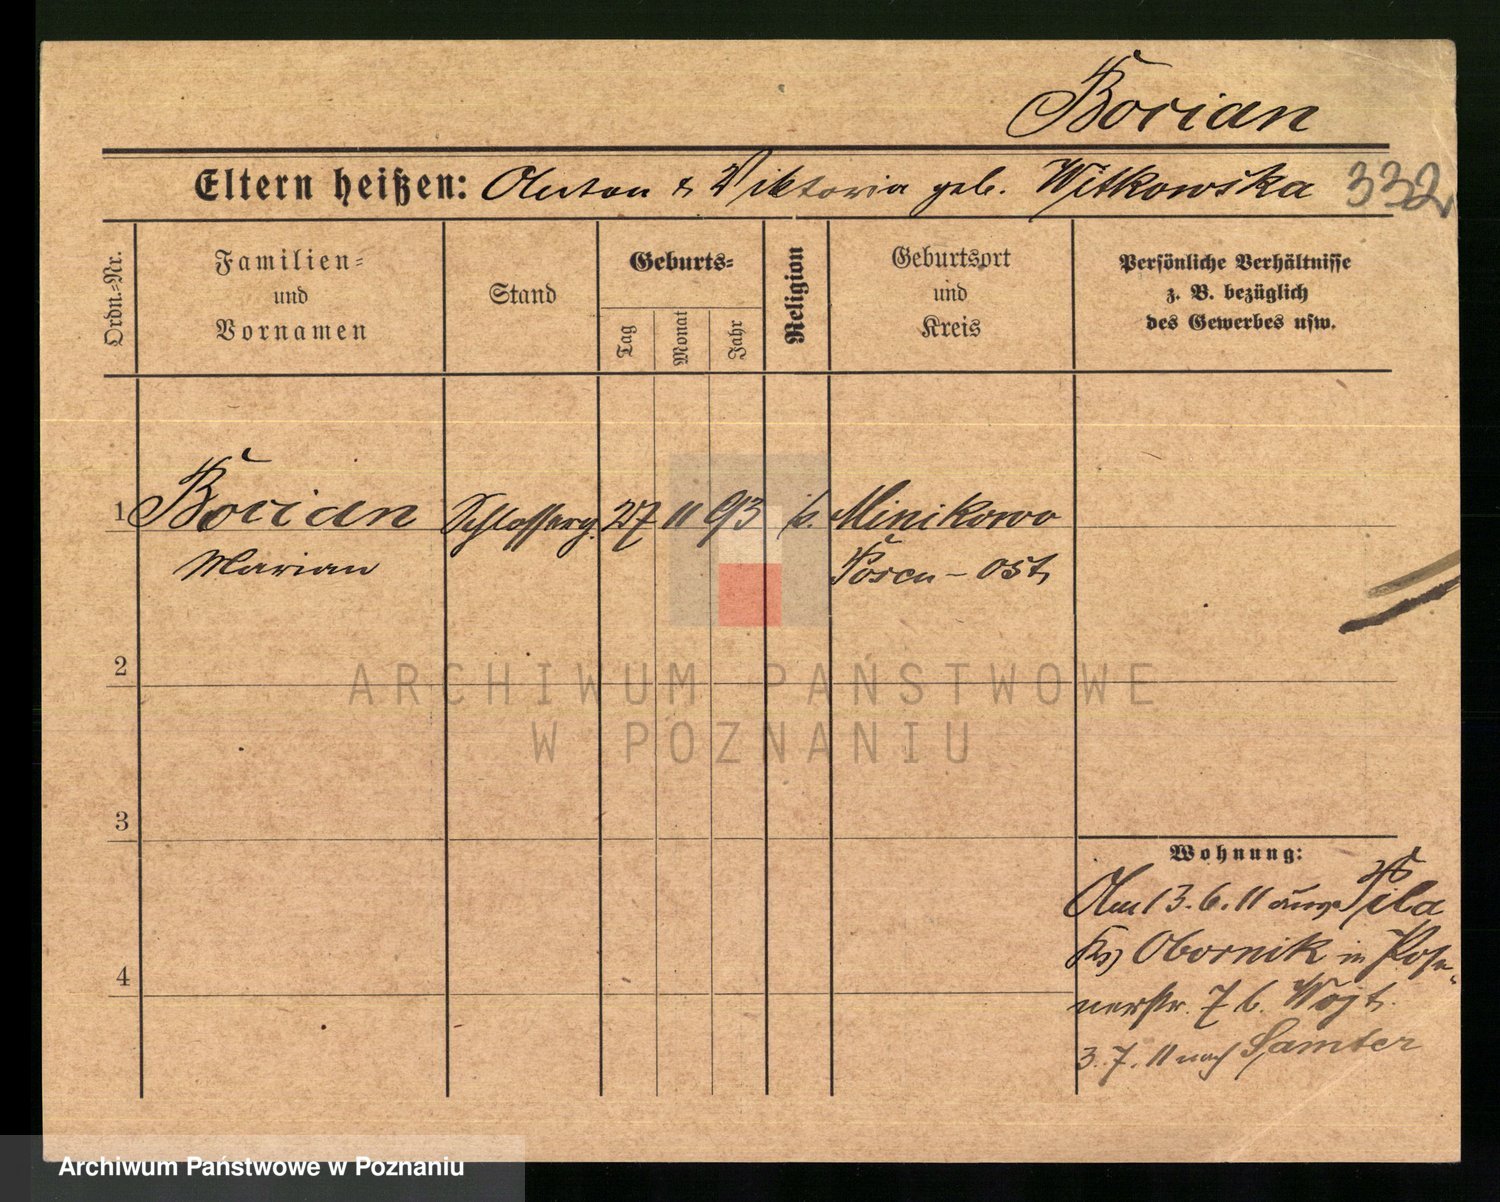 Bocian
Eltern heißen: Anton & Viktoria geb. Witkowska 332
Ordn.-Nr.
Familien-
und
Vornamen
Stand
Geburts-
Tag
Monat
Jahr
Religion
Geburtsort
und
Kreis
Persönliche Verhältnisse
z. B. bezüglich
des Gewerbes usw.
1 Bocian Schlosserg. 27 11 93 k. Minikowo
Marian Posen-Ost
2
ARCHIWUM PAŃSTWOWE
W POZNANIU
3
Wohnung:
Am 13.6.11 aus Pila
Obornik in Pose-
nerstr. 7 b. Wojt.
4
3.7.11 nach Samter
Archiwum Państwowe w Poznaniu